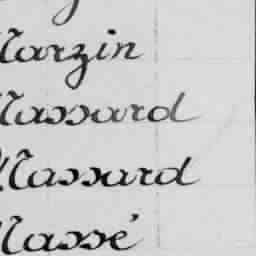 Marzin
Massard
Massard
Massé